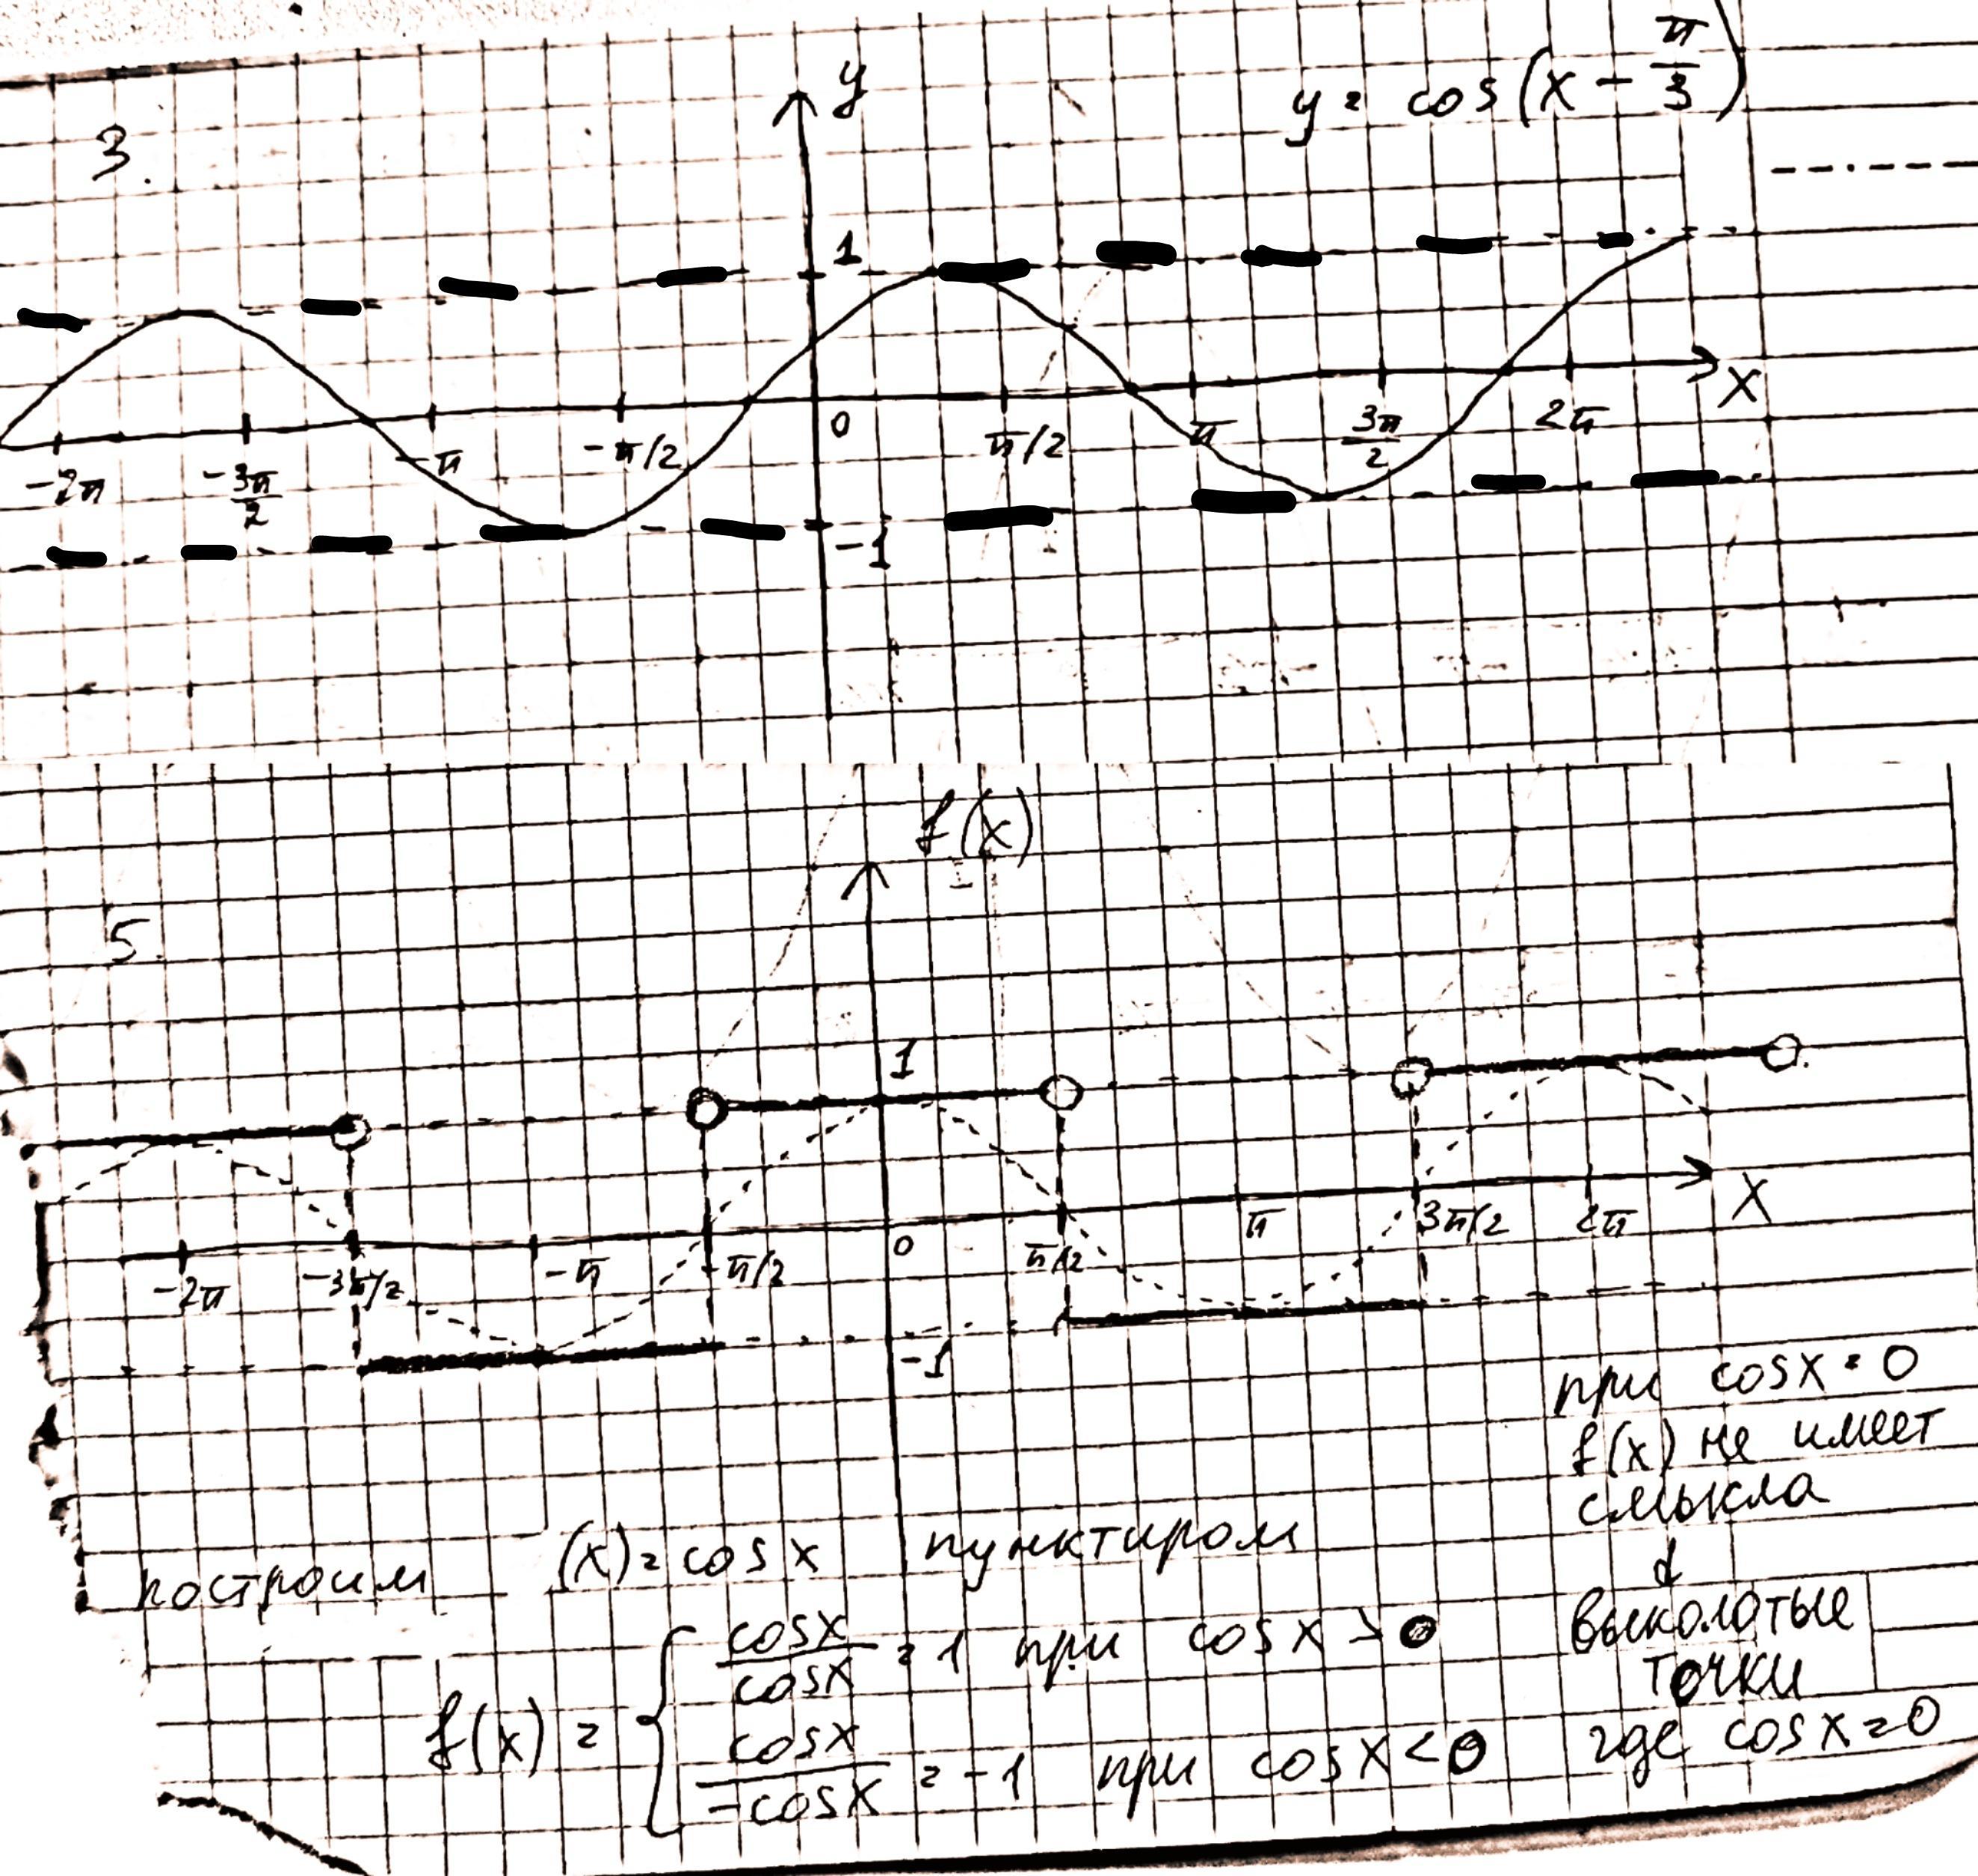 3.
y
y = cos(x - π/3)
1
0
x
-2π
-3π/2
-π
-π/2
π/2
π
3π/2
2π
-1
f(x)
5.
1
0
x
-2π
-3π/2
-π
-π/2
π/2
π
3π/2
2π
-1
при cosx = 0
f(x) не имеет
смысла
выколотые
точки
где cosx = 0
построим (x) = cos x пунктиром
f(x) = { cosx/cosx = 1 при cosx > 0
cosx/-cosx = -1 при cosx < 0